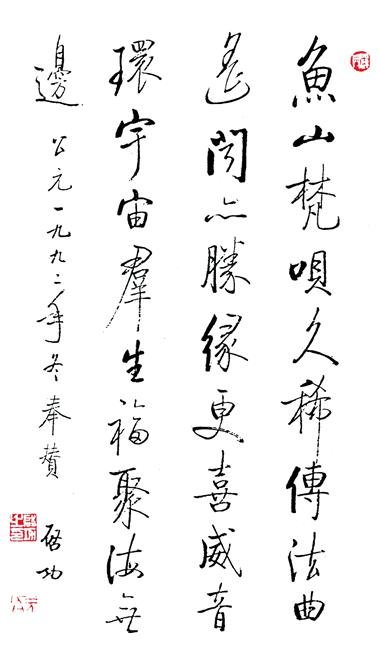 魚山梵唄久稀傳法曲
遙聞亦勝緣更喜威音
環宇宙羣生福聚海無
邊 公元一九九二年冬奉贊
啓功